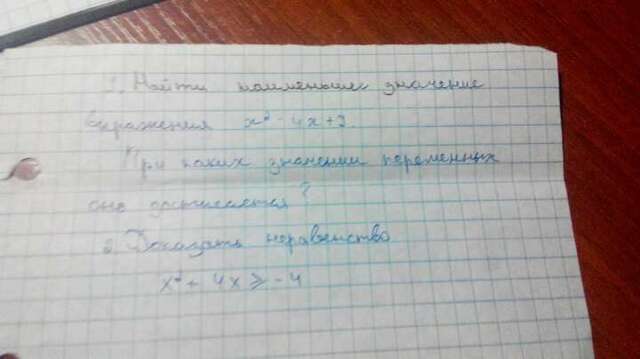 1. Найти наименьшее значение
выражения x² - 4x + 2.
При каких значении переменных
оно достигается?
2. Доказать неравенство
x² + 4x ⩾ -4